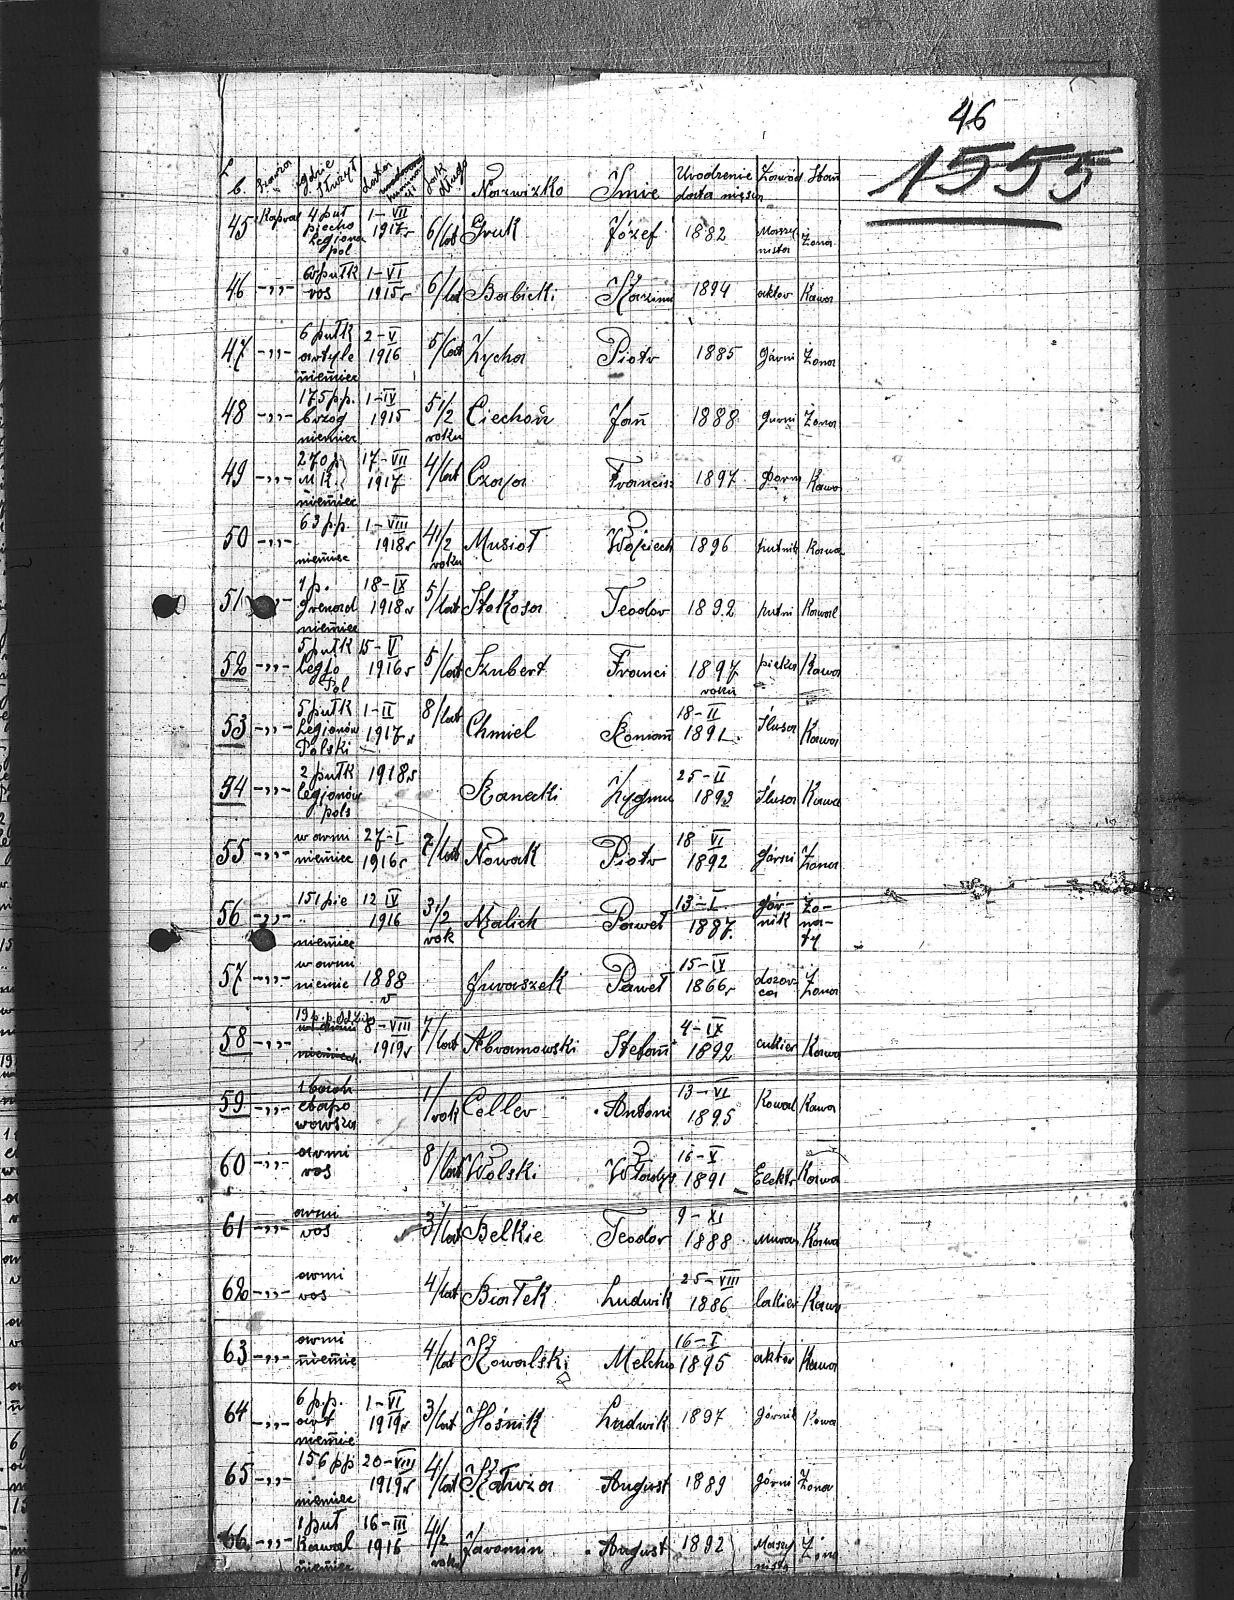 46
1555
L b. gdzie służył jak długo Nazwizko Imie Urodzenie data miesią Zawód Stan
45 Kapral 4 puł piecho Legiono pol 1-VII 1917r 6/lat Gruk Józef 1882 Maszynista Żona
46 -"- 60 pułk ros 1-VI 1915r 6/lat Babicki Kazimi 1894 aktor Kawa
47 -"- 6 pułk artyle niemiec 2-V 1916 5/lat Zycha Piotr 1885 górni Żona
48 -"- 175 pp. niemiec 1-IV 1915 5 1/2 roku Ciechoń Jan 1888 gurni Żona
49 -"- 270 p. niemiec 17-VII 1917 4/lat Czaja Francisz 1897 Kawa
50 -"- 63 p.p. niemiec 1-VIII 1918r 4 1/2 roku Musioł Wojciech 1896 hutnik Kawa
51 -"- 1 p. Grenad niemiec 18-IX 1918r 5/lat Stokosa Teodor 1892 hutni Kawal
52 -"- 5 pułk Legjo Pol 15-V 1916r 5/lat Szubert Franci 1897 roku pieka Kawa
53 -"- 5 pułk Legionów Polski 1-II 1917r 8/lat Chmiel Roman 18-II 1891. Ślusa Kawa
54 -"- 2 pułk legjonów pols 1918r Kanecki Zygmu 25-II 1893 Ślusa Kawa
55 -"- w armi niemiec 27-I 1916r 2/lat Nowak Piotr 18 VI 1892 Górni Żona
56 -"- 151 pie niemiec 12 IV 1916 3 1/2 rok Paweł 13-I 1887. górnik Żonaty
57 -"- w armi niemie 1888 r Juraszek Paweł 15-IV 1866r dozorca Żona
58 -"- 19 p.p. 8-VIII 1919r 7/lat Abramowski Stefan 4-IX 1892 cukier Kawa
59 -"- 1 baoń etapo warsza 1/rok Celler Antoni 13-VI 1895 Kowal Kawa
60 -"- armi ros 8/lat Wolski Włodzy 16-X 1891 Elektr Kawa
61 -"- armi ros 3/lat Belkie Teodor 9-XI 1888 murar Kawa
62 -"- armi ros 4/lat Białek Ludwik 25-VIII 1886 lakier Kawa
63 -"- armi niemie 4/lat Kowalski Melchi 16-I 1895 aktor Kawa
64 -"- 6 p.p. art niemie 1-VI 1919r 3/lat Hośnik Ludwik 1897 górnik Kawa
65 -"- 156 pp niemiec 20-VIII 1919r 4/lat Kałuza August 1889 górni Żona
66 -"- 1 puł Kawal niemiec 16-III 1916 4 1/2 roku Jaromin August 1892 Maszynista Żona